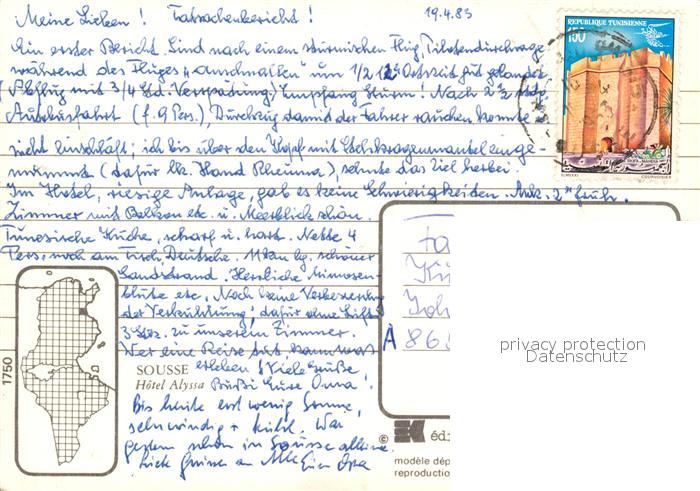 Meine Lieben! Tatsachenbericht! 19.4.83
Ein erster Bericht. Sind nach einem stürmischen Flug, Pilotendurchsage
während des Fluges "anschnallen" um 1/2 12h Ortszeit gut gelandet.
(Abflug mit 3/4 Std. Verspätung.) Empfang Sturm! Nach 2 1/2 stdg.
Autobusfahrt (f. 9 Pers.), Durchzug damit der Fahrer rauchen konnte
nicht einschläft; ich bis über den Kopf mit Stehkragenmantel einge-
mummt (dafür lk. Hand Rheuma), sehnte das Ziel herbei.
Im Hotel, riesige Anlage, gab es keine Schwierigkeiten. Ank. 2h früh.
Zimmer mit Balkon etc. u. Meerblick schön.
Tunesische Küche, scharf u. hart. Nette 4
Pers. noch am Tisch, Deutsche. schöner
Sandstrand. Herrliche Mimosen-
blüte etc. Noch keine Verbesserung
der Verkühlung; dafür ohne Lift
3 zu unserem Zimmer.
Wer eine Reise tut, kann was
erleben! Viele Grüße
Bußi Eure Oma!
Bis heute erst wenig Sonne,
sehr windig + kühl. War
gestern schon in Sousse alleine.
Liebe Grüsse an Alle Euer Opa
SOUSSE
Hôtel Alyssa
1750
REPUBLIQUE TUNISIENNE
150
COURVOISIER
A 86
© édi
modèle dép
reproductio
privacy protection
Datenschutz